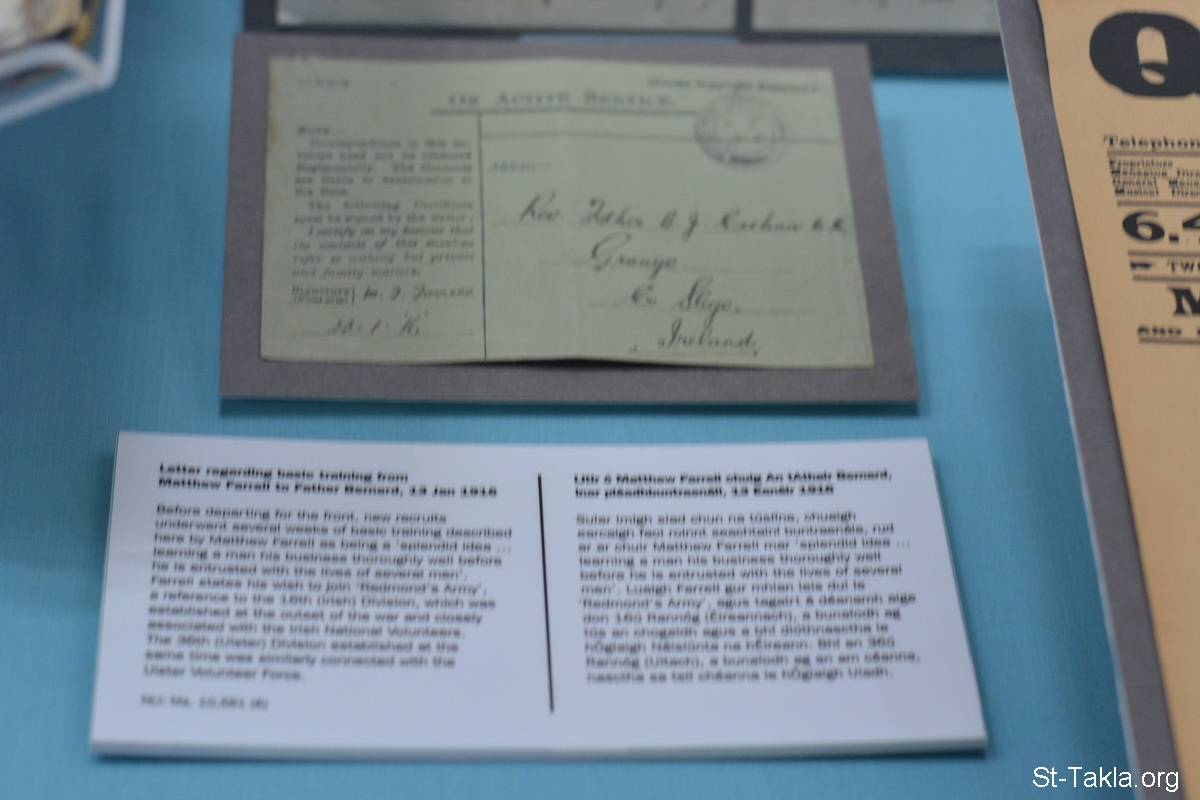 ON ACTIVE SERVICE.
NOTE.—
Correspondence in this en-
velope need not be censored
Regimentally. The Contents
are liable to examination at
the Base.
The following Certificate
must be signed by the writer:
I certify on my honour that
the contents of this envelope
refer to nothing but private
and family matters.
Signature
Address
Rev Father B J
Grange
Co Sligo,
Ireland,
Q
Telephon
Proprietors
Managing Dire
General Mana
Musical Direc
6.4
TWO
M
AND
Letter regarding basic training from
Matthew Farrell to Father Bernard, 13 Jan 1916
Before departing for the front, new recruits
underwent several weeks of basic training described
here by Matthew Farrell as being a 'splendid idea ...
learning a man his business thoroughly well before
he is entrusted with the lives of several men'.
Farrell states his wish to join 'Redmond's Army',
a reference to the 16th (Irish) Division, which was
established at the outset of the war and closely
associated with the Irish National Volunteers.
The 36th (Ulster) Division established at the
same time was similarly connected with the
Ulster Volunteer Force.
NLI: Ms.
Litir ó Matthew Farrell chuig An tAthair Bernard,
inar pléadhbuntraenáil, 13 Eanáir 1916
Sular imigh siad chun na túslíne, chuaigh
earcaigh faoi roinnt seachtainí buntraenála, rud
ar ar chuir Matthew Farrell mar 'splendid idea ...
learning a man his business thoroughly well
before he is entrusted with the lives of several
men'. Luaigh Farrell gur mhian leis dul le
'Redmond's Army', agus tagairt á déanamh aige
don 16ú Rannóg (Éireannach), a bunaíodh ag
tús an chogaidh agus a bhí dlúthnasctha le
hÓglaigh Náisiúnta na hÉireann. Bhí an 36ú
Rannóg (Ultach), a bunaíodh ag an am céanna,
nasctha sa tslí chéanna le hÓglaigh Uladh.
St-Takla.org